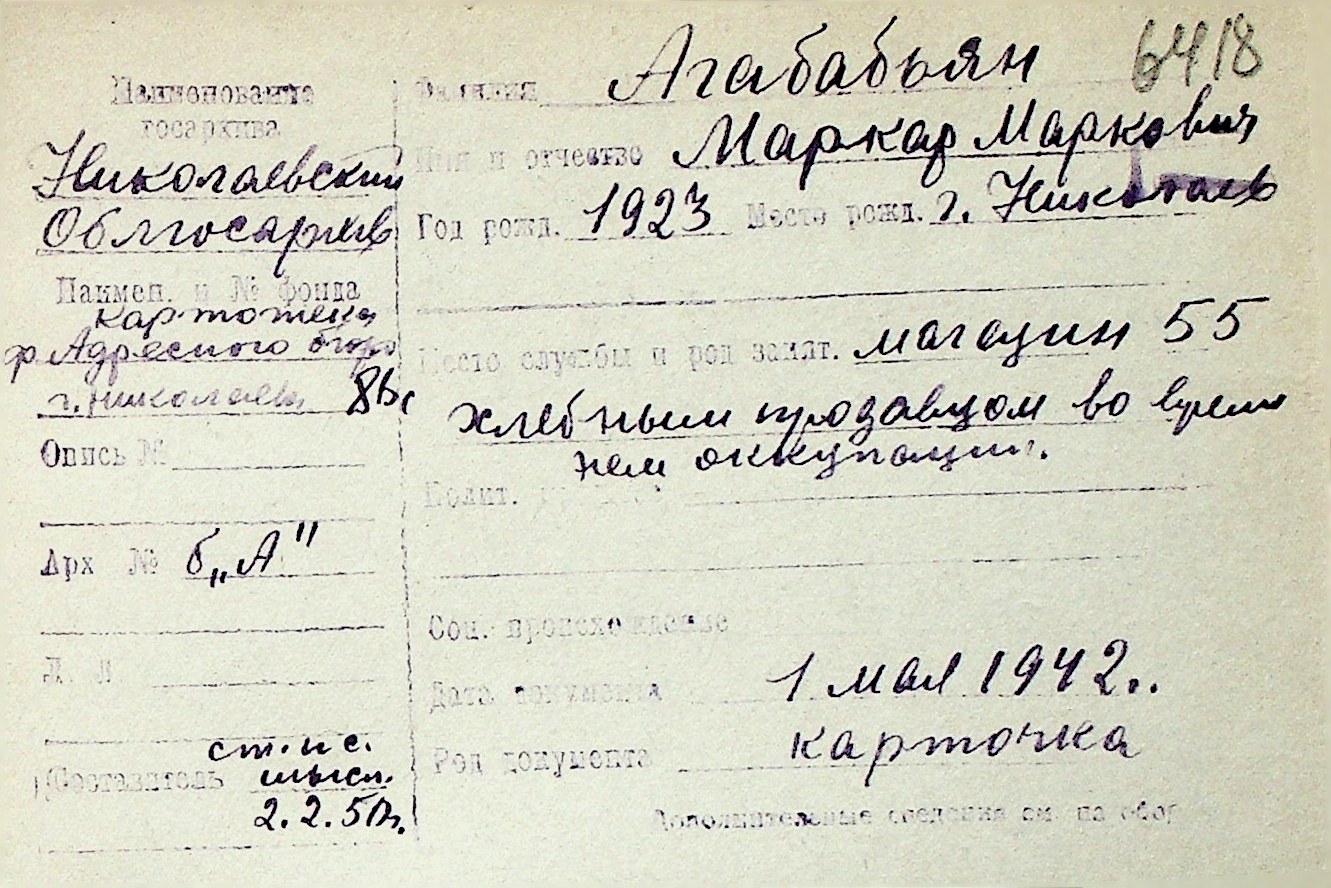 6418
Наименование
госархива
Николаевский
Облгосархив
Наимен. и № фонда
картотека
ф Адресного бюро
г. Николаев 8в.
Опись №
Арх № б „А"
Л. Л.
ст. н с.
Составитель
2.2.50г.
Фамилия Агабабьян
Имя и отчество Маркар Маркович
Год рожд. 1923 Место рожд. г. Николаев
Место службы и род занят. магазин 55
хлебным продавцом во время
нем оккупации.
Полит.
Соц. происхождение
Дата документа 1 мая 1942г.
Род документа карточка
Дополнительные сведения см. на обор